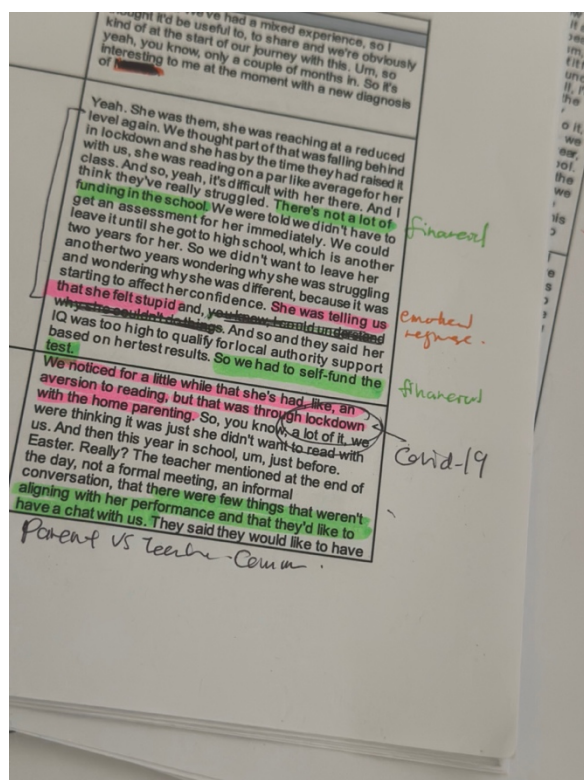 we've had a mixed experience, so I
thought it'd be useful to, to share and we're obviously
kind of at the start of our journey with this. Um, so
yeah, you know, only a couple of months in. So it's
interesting to me at the moment with a new diagnosis
of
Yeah. She was them, she was reaching at a reduced
level again. We thought part of that was falling behind
in lockdown and she has by the time they had raised it
with us, she was reading on a par like average for her
class. And so, yeah, it's difficult with her there. And I
think they've really struggled. There's not a lot of
funding in the school. We were told we didn't have to
get an assessment for her immediately. We could
leave it until she got to high school, which is another
two years for her. So we didn't want to leave her
another two years wondering why she was struggling
and wondering why she was different, because it was
starting to affect her confidence. She was telling us
that she felt stupid and, you know, I could understand
why she couldn't do things. And so and they said her
IQ was too high to qualify for local authority support
based on her test results. So we had to self-fund the
test.
We noticed for a little while that she's had, like, an
aversion to reading, but that was through lockdown
with the home parenting. So, you know, a lot of it, we
were thinking it was just she didn't want to read with
us. And then this year in school, um, just before.
Easter. Really? The teacher mentioned at the end of
the day, not a formal meeting, an informal
conversation, that there were few things that weren't
aligning with her performance and that they'd like to
have a chat with us. They said they would like to have
financial
emotional
financial
Covid-19
Parent vs Teacher Comm.